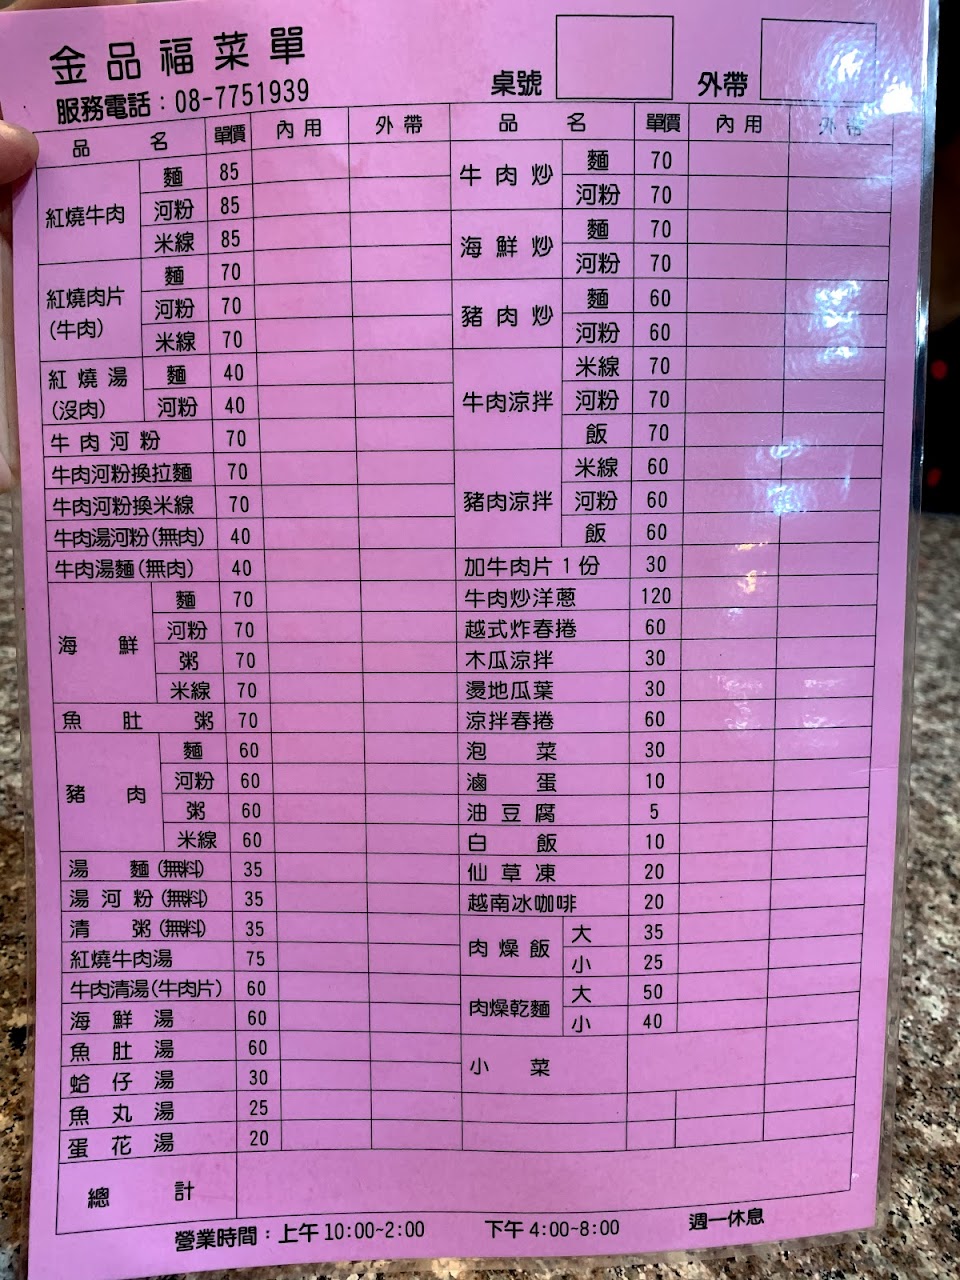 金品福菜單
服務電話：08-7751939
桌號 外帶
品名 單價 內用 外帶
紅燒牛肉 麵 85
河粉 85
米線 85
紅燒肉片(牛肉) 麵 70
河粉 70
米線 70
紅燒湯(沒肉) 麵 40
河粉 40
牛肉河粉 70
牛肉河粉換拉麵 70
牛肉河粉換米線 70
牛肉湯河粉(無肉) 40
牛肉湯麵(無肉) 40
海鮮 麵 70
河粉 70
粥 70
米線 70
魚肚粥 70
豬肉 麵 60
河粉 60
粥 60
米線 60
湯麵(無料) 35
湯河粉(無料) 35
清粥(無料) 35
紅燒牛肉湯 75
牛肉清湯(牛肉片) 60
海鮮湯 60
魚肚湯 60
蛤仔湯 30
魚丸湯 25
蛋花湯 20
品名 單價 內用 外帶
牛肉炒 麵 70
河粉 70
海鮮炒 麵 70
河粉 70
豬肉炒 麵 60
河粉 60
牛肉涼拌 米線 70
河粉 70
飯 70
豬肉涼拌 米線 60
河粉 60
飯 60
加牛肉片1份 30
牛肉炒洋蔥 120
越式炸春捲 60
木瓜涼拌 30
燙地瓜葉 30
涼拌春捲 60
泡菜 30
滷蛋 10
油豆腐 5
白飯 10
仙草凍 20
越南冰咖啡 20
肉燥飯 大 35
小 25
肉燥乾麵 大 50
小 40
小菜
總計
營業時間：上午10:00~2:00 下午4:00~8:00 週一休息